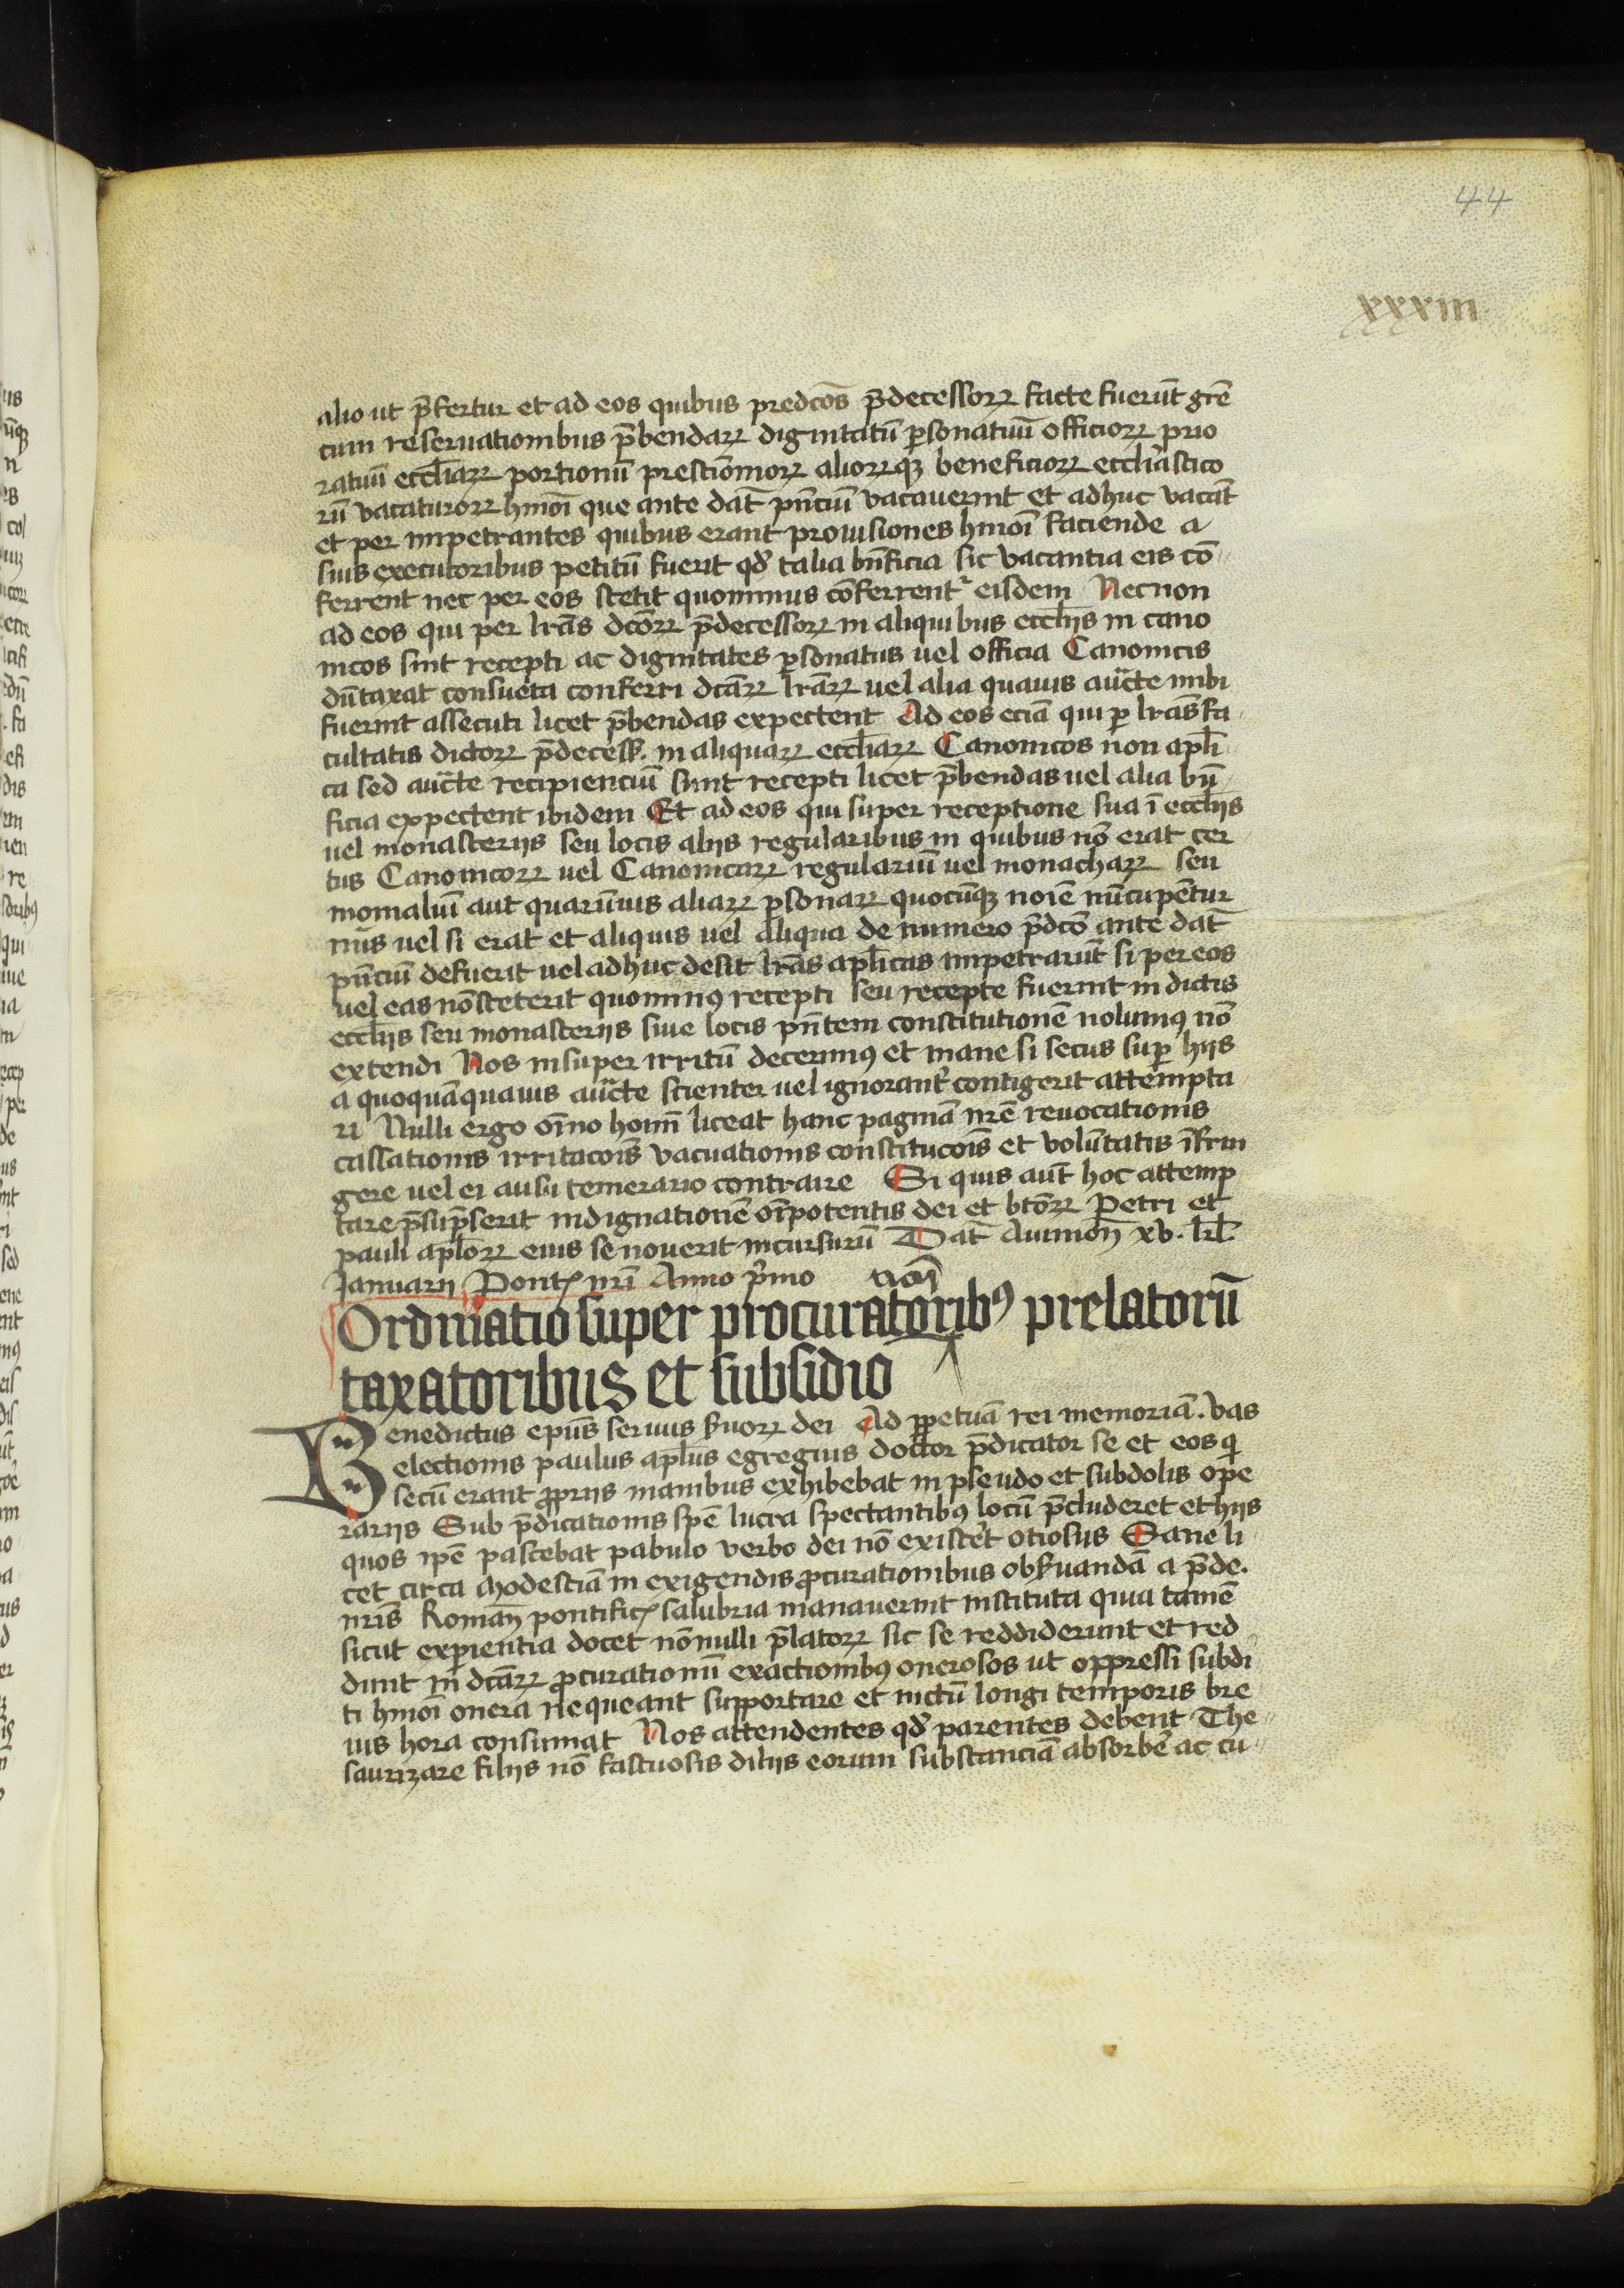 44
xxxiii
alio ut p̄fertur et ad eos quibus predc̄os p̄decessoꝝ facte fuerūt gr̄e
cum reseruationibus p̄bendaꝝ dignitatū ꝑsonatuū officioꝝ prio
ratuū eccl̄iaꝝ portionū prestīmonioꝝ alioꝝqꝫ beneficioꝝ eccl̄iastico
rū vacaturoꝝ hmōi que ante dat̄ pn̄ciū vacauerint et adhuc vacāt
et per impetrantes quibus erant prouisiones hmōi faciende a
suis executoribus petitū fuerit qd̄ talia bn̄ficia sic vacantia eis cō
ferrent nec per eos stetit quominus cōferrent᷑ eisdem Necnon
ad eos qui per lr̄as dc̄oꝝ p̄decessoꝝ in aliquibus eccl̄iis in cano
nicos sint recepti ac dignitates ꝑsonatus uel officia Canonicis
dūtaxat consueta conferri dc̄aꝝ lr̄aꝝ uel alia quauis auc̄te inibi
fuerint assecuti licet p̄bendas expectent Ad eos eciā qui ꝑ lr̄as fa
cultatis dictoꝝ p̄decess. in aliquaꝝ eccl̄iaꝝ Canonicos non apl̄i
ca sed auc̄te recipienciū sunt recepti licet p̄bendas uel alia bn̄
ficia expectent ibidem Et ad eos qui super receptione sua ī eccl̄iis
uel monasteriis seu locis aliis regularibus in quibus nō erat cer
tus Canonicoꝝ uel Canonicaꝝ regulariū uel monachaꝝ seu
monialiū aut quarūuis aliaꝝ ꝑsonaꝝ quocūqꝫ noīe nūcupētur
nūs uel si erat et aliquis uel aliqua de numero p̄dc̄o ante dat̄
pn̄ciū defuerit uel adhuc desit lr̄as apl̄icas impetrarūt si per eos
uel eas nō steterit quominꝰ recepti seu recepte fuerint in dictis
eccl̄iis seu monasteriis siue locis pn̄tem constitutionē nolumꝰ nō
extendi Nos insuper irritū decernimꝰ et inane si secus suꝑ hiis
a quoquā quauis auc̄te scienter uel ignorant᷑ contigerit attempta
ri Nulli ergo oīno hoīm liceat hanc paginā nr̄e reuocationis
cassationis irritacōis vacuationis constitucōis et volūtatis īfrin
gere uel ei ausu temerario contraire Si quis aūt hoc attemp
tare p̄sūpserit indignationē oīpotentis dei et bt̄oꝝ Petri et
pauli apl̄oꝝ eius se nouerit incursurū Dat̄ Auinioñ xv. kl̄.
Januarii Pontꝭ nr̄i Anno p̄mo
tiōi
Ordinatio super procuratoribꝰ prelatorū
taxatoribus et subsidio
Benedictus ep̄us seruus ẜuoꝝ dei Ad ꝑpetuā rei memoriā. Vas
electionis paulus apl̄us egregius doctor p̄dicator se et eos q̄
secū erant ꝓpriis manibus exhibebat in pseudo et subdolis oꝑe
rariis Sub p̄dicationis spē lucra spectantibꝰ locū p̄cluderet et hiis
quos ip̄e pascebat pabulo verbo dei nō existēt otiosus Sane li
cet circa modestiā in exigendis ꝓcurationibus obẜuandā a p̄de.
nr̄is Romañ pontificꝭ salubria manauerint instituta quia tamē
sicut exꝑientia docet nōnulli p̄latoꝝ sic se reddiderunt et red
dunt in dc̄aꝝ ꝓcurationū exactionibꝰ onerosos ut oppressi subdi
ti hmōi onera nequeant supportare et uictū longi temporis bre
uis hora consumat Nos attendentes qd̄ parentes debent The
saurizare filiis nō fastuosis diliis eorum substanciā absorbē ac cu